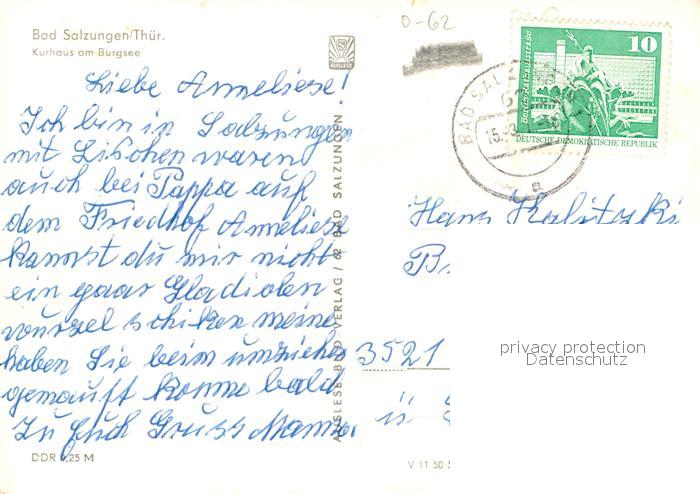 Bad Salzungen/Thür.
Kurhaus am Burgsee
Liebe Anneliese!
Ich bin in Salzungen
mit Lischen waren
auch bei Pappa auf
dem Friedhof Anneliese
kannst du mir nicht
ein paar Gladiolen
wurzel schiken meine
haben Sie beim umziehen
gemauft komme bald
zu Euch Gruss Mama.
DDR 0,25 M
AUSLESE-BILD-VERLAG / 62 BAD SALZUNGEN
V 11 50
D-62
10
Berlin-Rathausstraße
DEUTSCHE DEMOKRATISCHE REPUBLIK
BAD SALZ
15.
a
Hans Kalitzki
3521
ü
privacy protection
Datenschutz